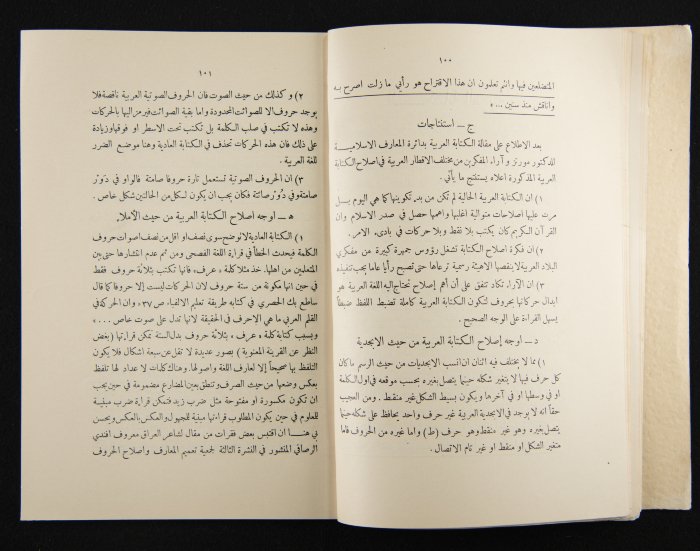 ١٠٠
المتضلعين فيها وانتم تعلمون ان هذا الاقتراح هو رأيي ما زلت اصرح به
واناقش منذ سنين ... »
ج — استنتاجات
بعد الاطلاع على مقالة الكتابة العربية بدائرة المعارف الاسلامية
للدكتور مورتز و آراء المفكرين من مختلف الاقطار العربية في اصلاح الكتابة
العربية المذكورة اعلاه يستنتج ما يأتي.
١) ان الكتابة العربية الحالية لم تكن من بدء تكوينها كما هي اليوم بل
مرت عليها اصلاحات متوالية اغلبها واهمها حصل في صدر الاسلام وان
القرآن الكريم كان يكتب بلا نقط وبلا حركات في بادىء الامر.
٢) ان فكرة اصلاح الكتابة تشغل رؤوس جمهرة كبيرة من مفكري
البلاد العربية لا ينقصها الا هيئة رسمية ترعاها حتى تصبح رأيا عاما يجب تنفيذه
٣) ان الآراء تكاد تتفق على أن أهم إصلاح تحتاج اليه اللغة العربية هو
ابدال حركاتها بحروف لتكون الكتابة العربية كاملة تضبط اللفظ ضبطاً
يسهل القراءة على الوجه الصحيح.
د — اوجه إصلاح الكتابة العربية من حيث الابجدية
١) مما لا يختلف فيه اثنان ان انسب الابجديات من حيث الرسم ما كان
كل حرف فيها لا يتغير شكله حينما يتصل بغيره بحسب موقعه في اول الكلمة
او في وسطها او في آخرها ويكون بسيط الشكل غير منقط. ومن العجب
حقاً انه لا يوجد في الابجدية العربية غير حرف واحد يحافظ على شكله حينما
يتصل بغيره وهو غير منقط وهو حرف (ط) واما غيره من الحروف فاما
متغير الشكل او منقط او غير تام الاتصال.
١٠١
٢) وكذلك من حيث الصوت فان الحروف الصوتية العربية ناقصة فلا
يوجد حروف الا للصوائت المحدودة واما بقية الصوائت فيرمز اليها بالحركات
وهذه لا تكتب في صلب الكلمة بل تكتب تحت الاسطر او فوقها وزيادة
على ذلك فان هذه الحركات تحذف في الكتابة العادية وهنا موضع الضرر
للغة العربية.
٣) ان الحروف الصوتية تستعمل تارة حروفا صامتة فالواو في دَوْر
صامتة وفي دُور صائتة فكان يجب ان يكون لكل من الحالتين شكل خاص.
هـ — اوجه إصلاح الكتابة العربية من حيث الاملاء
١) الكتابة العادية لا توضح سوى نصف او اقل من نصف اصوات حروف
الكلمة فيحدث الخطأ في قراءة اللغة الفصحى ومن ثم عدم انتشارها حتى بين
المتعلمين من اهلها. خذ مثلا كلمة « عرف » فانها تكتب بثلاثة حروف فقط
في حين انها مكونة من ستة حروف لان الحركات ليست إلا حروفا كما قال
ساطع بك الحصري في كتابه طريقة تعليم الالفباء ص ٣٧ « وان الحركة في
القلم العربي ما هي الا حرف في الحقيقة لانها تدل على صوت خاص ... »
وبسبب كتابة كلمة « عرف » بثلاثة حروف بدل الستة تمكن قراءتها (بغض
النظر عن القرينة المعنوية) بصور عديدة لا تقل عن سبعة اشكال فلا يكون
التلفظ بها صحيحاً إلا لعارف اللغة واصولها. وهناك كلمات لا عداد لها تلفظ
بعكس وضعها من حيث الصرف وتنطق بعين المضارع مضمومة في حين يجب
ان تكون مكسورة او مفتوحة مثل ضرب زيد فتمكن قراءة ضرب مبنية
للمعلوم في حين يكون المطلوب قراءتها مبنية للمجهول والعكس بالعكس ويحسن
بي هنا ان اقتبس بعض فقرات من مقال لشاعر العراق معروف افندي
الرصافي المنشور في النشرة الثالثة لجمعية تعميم المعارف واصلاح الحروف